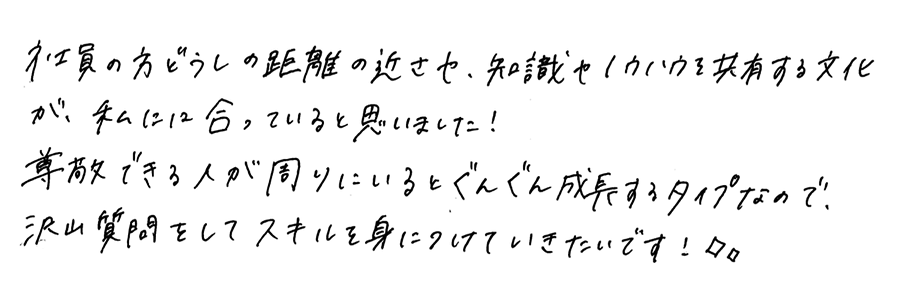 社員の方どうしの距離の近さや、知識やノウハウを共有する文化
が、私には合っていると思いました!
尊敬できる人が周りにいるとぐんぐん成長するタイプなので、
沢山質問をしてスキルを身につけていきたいです!